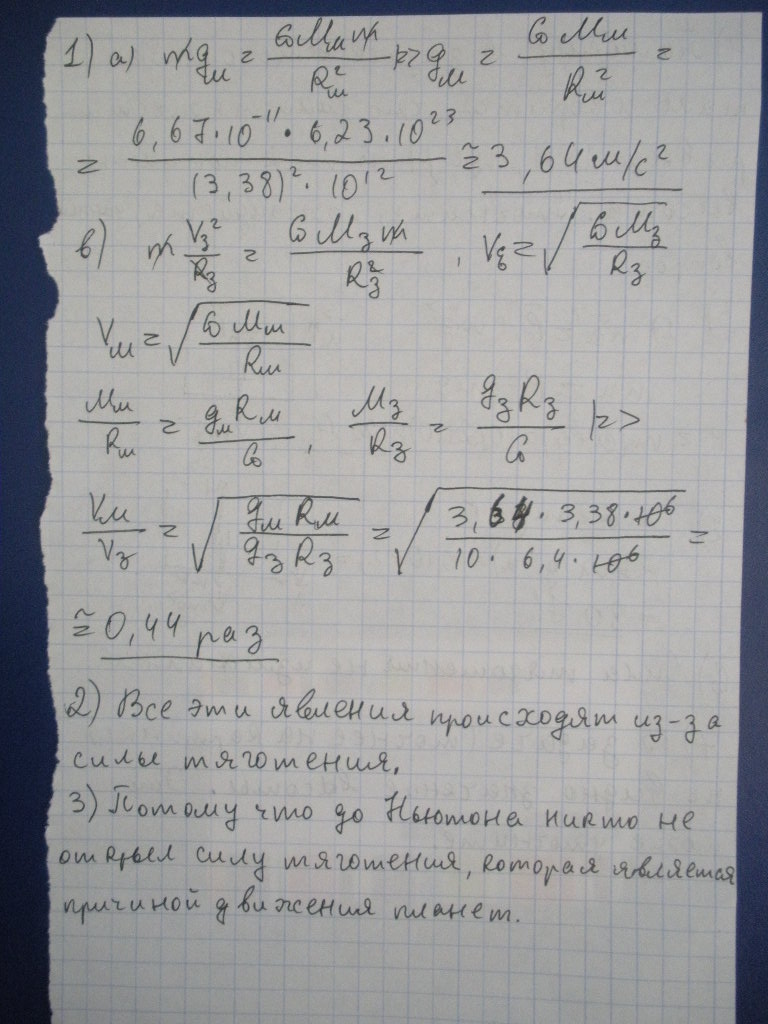 1) а) m̶gм = GMм m̶ / Rм² |=> gм = GMм / Rм² =
= 6,67·10⁻¹¹ · 6,23·10²³ / (3,38)²·10¹² ≅ 3,64 м/с²
в) m̶ Vз² / R̶з = GMз m̶ / Rз² , Vз = √(GMз / Rз)
Vм = √(GMм / Rм)
Mм / Rм = gм Rм / G , Mз / Rз = gз Rз / G |=>
Vм / Vз = √(gм Rм / gз Rз) = √(3,64 · 3,38·1̶0̶⁶ / 10 · 6,4·1̶0̶⁶) =
≅ 0,44 раз
2) Все эти явления происходят из-за
силы тяготения.
3) Потому что до Ньютона никто не
открыл силу тяготения, которая является
причиной движения планет.